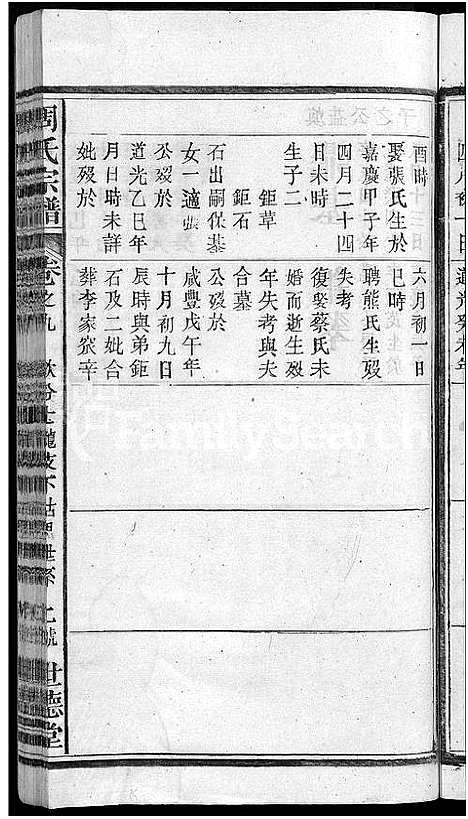 酉時
娶張氏生於
嘉慶甲子年
四月二十四
日未時
生子二
鉅草
鉅石
石出嗣保基
女一適張
公歿於
道光乙巳年
月日時未詳
妣歿於
六月初一日
巳時
聘熊氏生歿
失考
復娶蔡氏未
婚而逝生歿
年失考與夫
合墓
公歿於
咸豐戊午年
十月初九日
辰時與弟鉅
石及二妣合
葬李家
周氏宗譜
卷之九
世德堂
FamilySearch